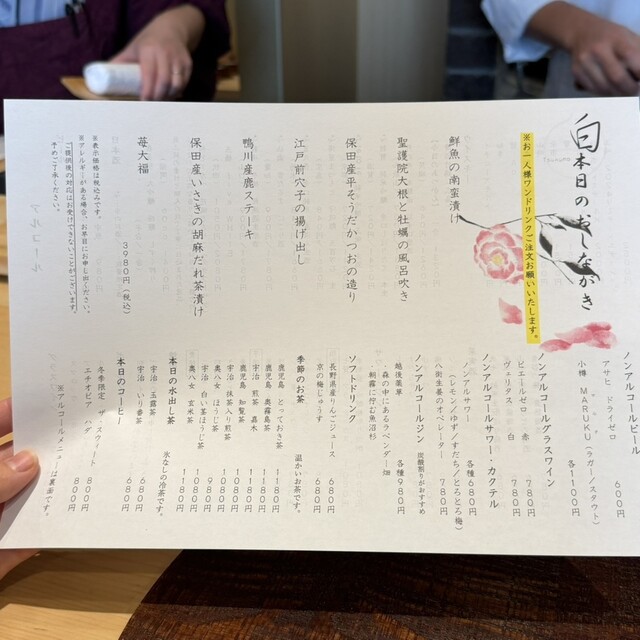 本日のおしながき
※お一人様ワンドリンクご注文お願いいたします。
鮮魚の南蛮漬け
聖護院大根と牡蠣の風呂吹き
保田産平そうだかつおの造り
江戸前穴子の揚げ出し
鴨川産鹿ステーキ
保田産いさきの胡麻だれ茶漬け
苺大福
3980円(税込)
※表示価格は税込みです。
※アレルギーがある場合、お早目にお申し出ください。
ご提供後の対応はお受けできないことがございます。
予めご了承ください。
ノンアルコールビール
アサヒ ドライゼロ 600円
小樽 MARUKU(ラガー/スタウト) 各1100円
ノンアルコールグラスワイン
ピエール ゼロ 赤 780円
ヴェリタス 白 780円
ノンアルコールサワー・カクテル
ノンアルサワー 各種680円
(レモン/ゆず/すだち/とろとろ梅)
八街生姜のオペレーター 780円
ノンアルコールジン 炭酸割りがおすすめ
越後薬草 各種980円
森の中にあるラベンダー畑
朝霧に佇む魚沼杉
ソフトドリンク
長野県産りんごジュース 680円
京の梅じゅうす 680円
季節のお茶 温かいお茶です。
鹿児島 とっておき茶 1180円
鹿児島 奥霧島茶 1180円
宇治 煎茶 嘉木 1180円
鹿児島 知覧茶 1080円
宇治 抹茶入り煎茶 1080円
宇治 白い茎ほうじ茶 980円
奥八女 ほうじ茶 900円
奥八女 玄米茶 1180円
本日の水出し茶 氷なしの冷茶です。
宇治 玉露茶 1180円
宇治 いり番茶 680円
本日のコーヒー
エチオピア ハルスケ 800円
※アルコールメニューは裏面です。